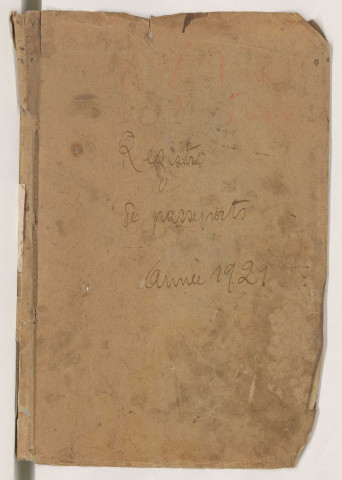 Registre
de passeports
Année 1921